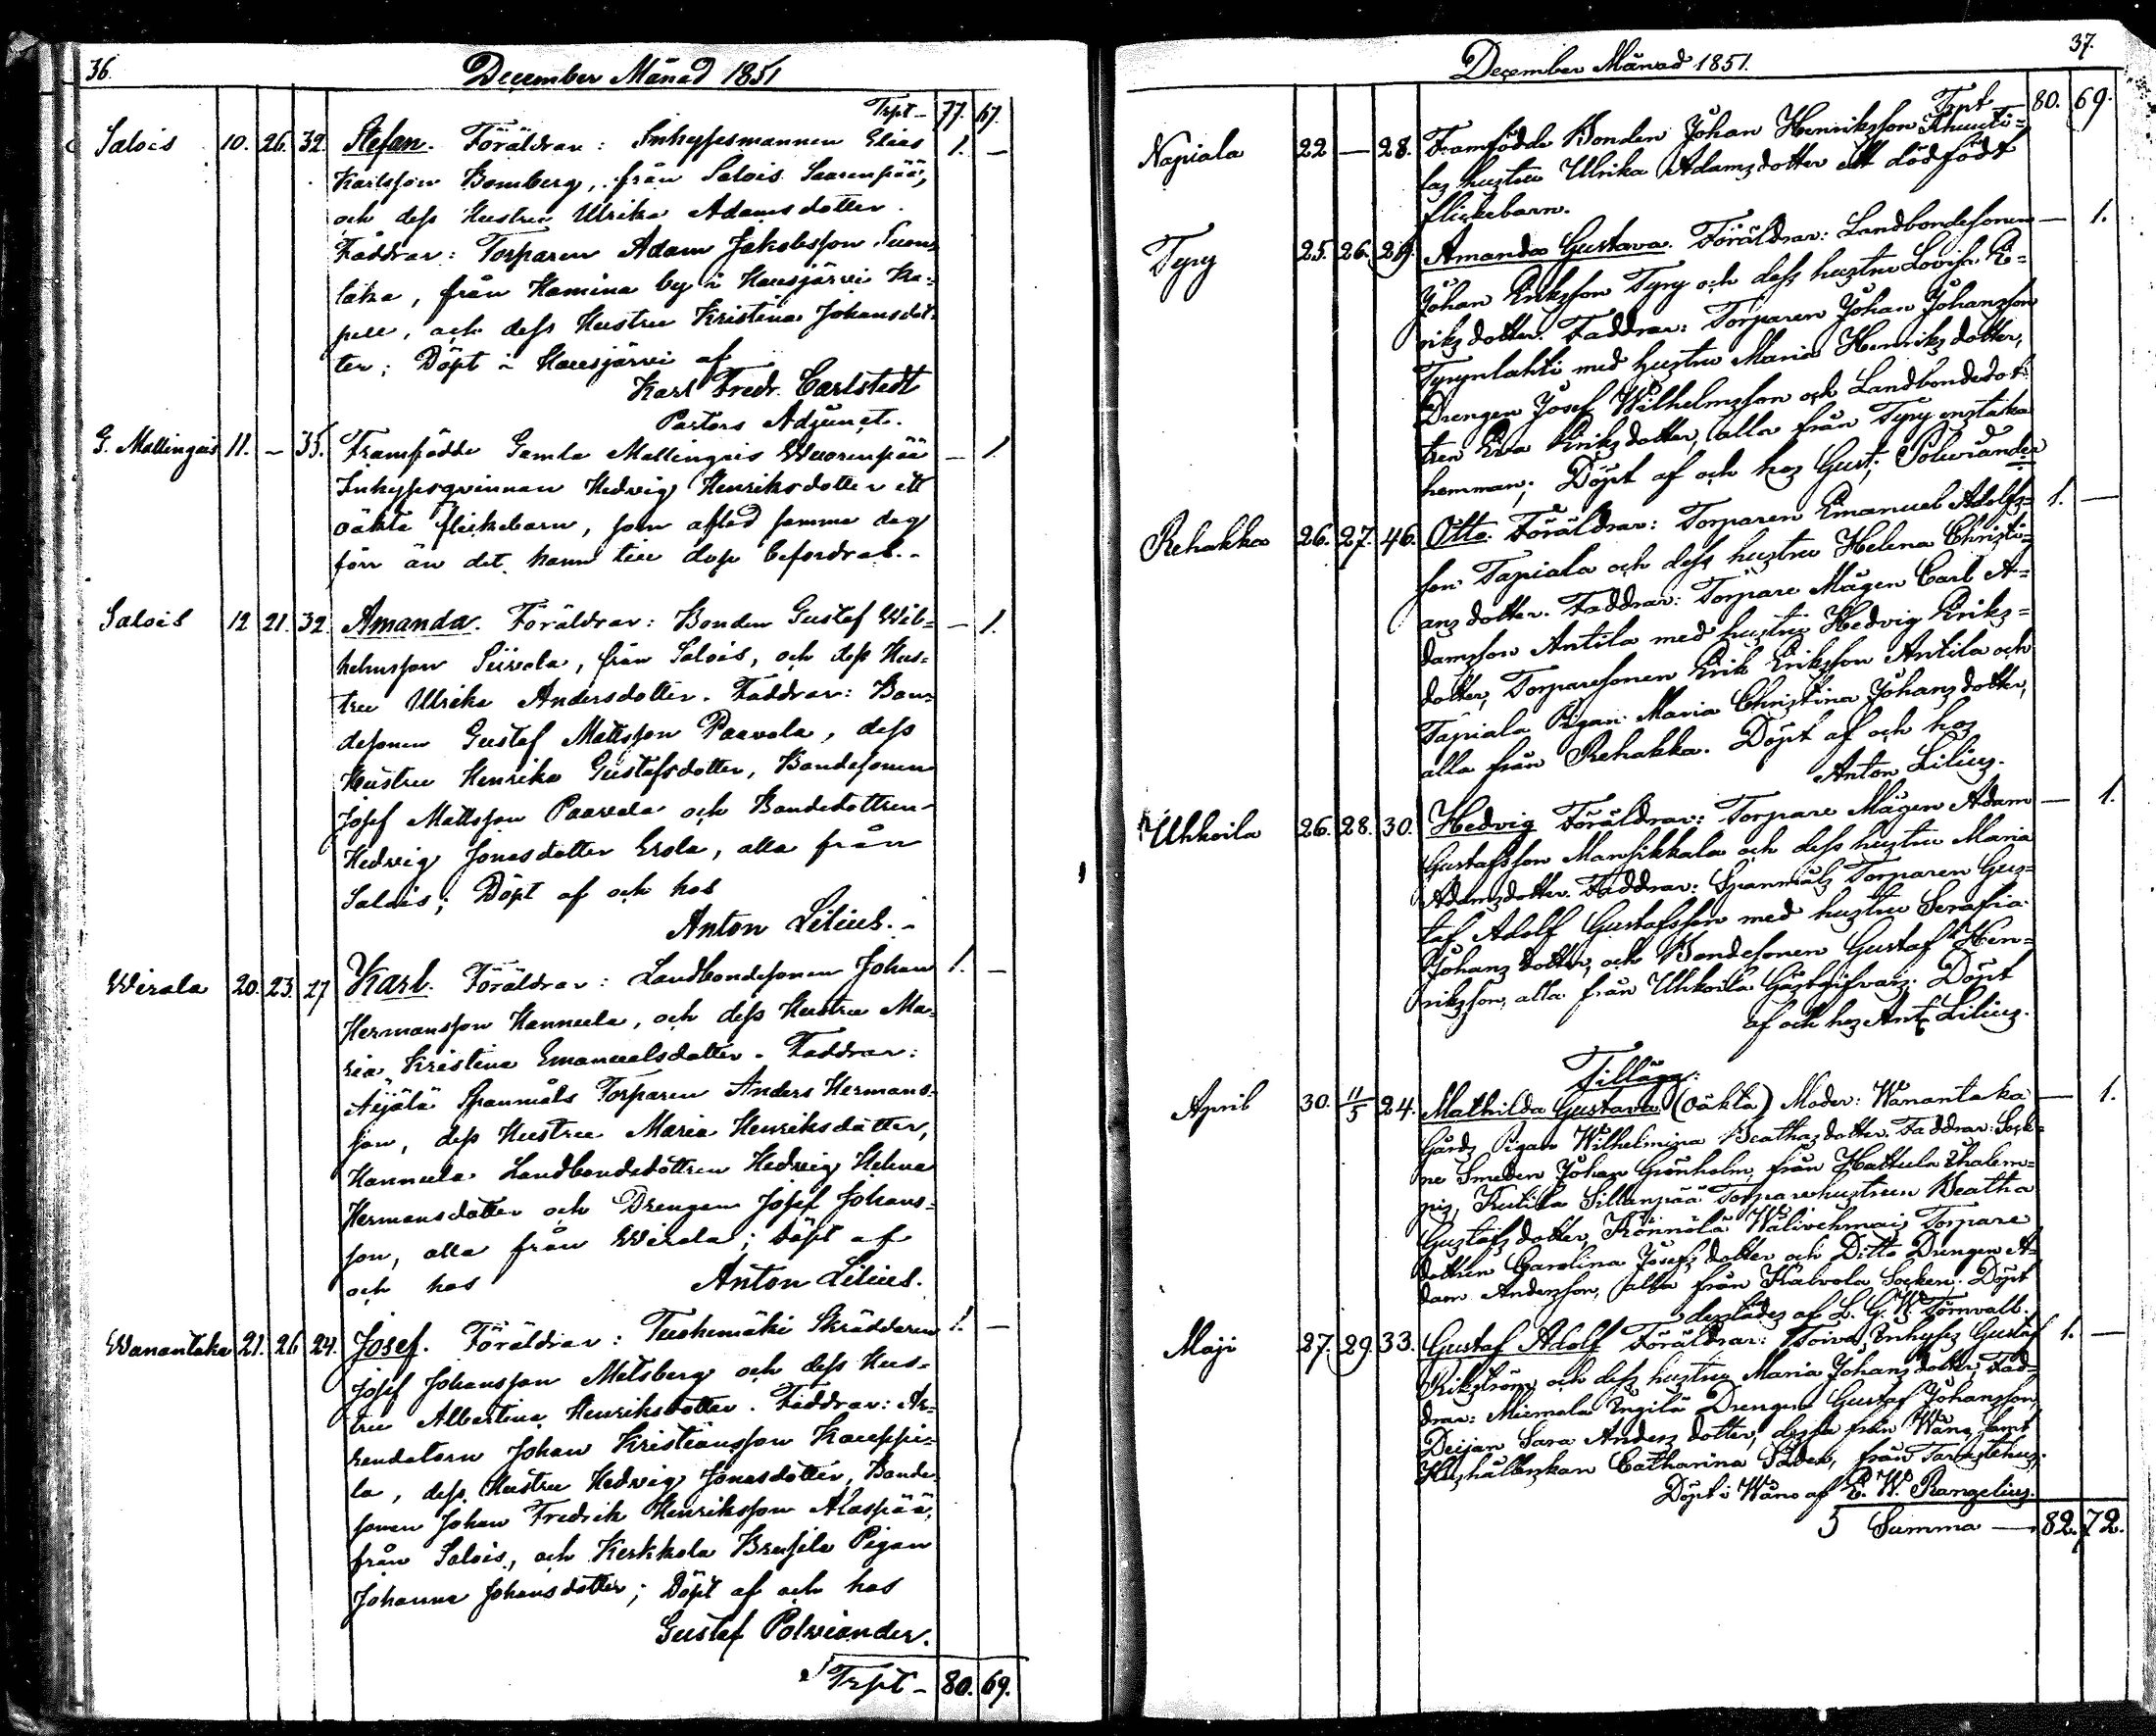 36.
December Månad 1851
Trpt - 77. 67.
Salois 10. 26. 32. Stefan. Föräldrar: Inhysesmannen Elias 1. -
Karlsson Bomberg, från Salois Saarenpää,
och dess Hustru Ulrika Adamsdotter.
Faddrar: Torparen Adam Jakobsson
från Hamina by i Hausjärvi Ka=
pell, och dess Hustru Kristina Johansdot=
ter; Döpt i Hausjärvi af
Karl Fredr. Carlstedt
Pastors Adjunct.
G. Mallingais 11. - 35. Framfödde Gamla Mallingais Wuorenpää - 1.
Inhysesqvinnan Hedvig Henriksdotter ett
oäkta flickebarn, som afled samma dag
förr än det hann till dop befordras.-
Salois 12 21. 32. Amanda. Föräldrar: Bonden Gustaf Wil= - 1.
helmsson Siirola, från Salois, och dess Hus=
tru Ulrika Andersdotter. Faddrar: Bon=
desonen Gustaf Mattsson Paavola, dess
Hustru Henrika Gustafsdotter, Bondesonen
Josef Mattsson Paavola och Bondedottren
Hedvig Jonasdotter Erola, alla från
Salois; Döpt af och hos
Anton Lilius.-
Wirala 20. 23. 27 Karl. Föräldrar: Landbondesonen Johan 1. -
Hermansson Hannula, och dess Hustru Ma=
ria Kristina Emanuelsdotter. Faddrar:
Äijälä Spanmåls Torparen Anders Hermans=
son, dess Hustru Maria Henriksdotter,
Hannula Landbondedottren Hedvig Helena
Hermansdotter och Drengen Josef Johans=
son, alla från Wirala; Döpt af
och hos Anton Lilius.
Wanantaka 21. 26 24. Josef. Föräldrar: Tuohimäki Skräddaren 1. -
Josef Johansson Metsberg och dess Hus=
tru Albertina Henriksdotter. Faddrar: Ar=
rendatorn Johan Kristiansson Kauppi=
la, dess Hustru Hedvig Jonasdotter, Bonde=
sonen Johan Fredrik Henriksson Alaspää,
från Salois, och Kerkkola Brusila Pigan
Johanna Johansdotter; Döpt af och hos
Gustaf Polviander.
Trpt - 80. 69.
37.
December Månad 1851.
Trpt - 80. 69.
Napiala 22 - 28. Framfödde Bonden Johan Henriksson
las hustru Ulrika Adamsdotter ett dödfödt
flickebarn.
Tyry 25. 26. 29. Amanda Gustava. Föräldrar: Landbondesonen - 1.
Johan Eriksson Tyry och dess hustru Lovisa E=
riksdotter. Faddrar: Torparen Johan Johansson
Tyrynlahti med hustru Maria Henriksdotter,
Drengen Josef Wilhelmsson och Landbondedot=
tren Eva Eriksdotter, alla från Tyry enstaka
hemman; Döpt af och hos Gust. Polviander
Rehakka 26. 27. 46. Otto. Föräldrar: Torparen Emanuel Adolfs= 1. -
son Tapiala och dess hustru Helena Christi=
ansdotter. Faddrar: Torpare Mågen Carl A=
damsson Antila med hustru Hedvig Eriks=
dotter, Torparesonen Erik Eriksson Antila och
Tapiala Pigan Maria Christina Johansdotter,
alla från Rehakka. Döpt af och hos
Anton Lilius.
Uhkoila 26. 28. 30. Hedvig Föräldrar: Torpare Mågen Adam - 1.
Gustafsson Mansikkala och dess hustru Maria
Adamsdotter. Faddrar: Spanmåls Torparen Gus=
taf Adolf Gustafsson med hustru Serafia
Johansdotter, och Bondesonen Gustaf Hen=
riksson, alla från Uhkoila Gästgifvars. Döpt
af och hos Ant. Lilius.
Tillägg:
April 30. 11/5 24. Mathilda Gustava (Oäkta) Moder: Wanantaka - 1.
Gårds Pigan Wilhelmina Beathasdotter. Faddrar: Sock=
ne Smeden Johan Grönholm, från Hattula
Kutila Sillanpää Torparehustrun Beatha
Gustafsdotter, Torpare
dottren Carolina Josefsdotter och Ditto Drengen A=
dam Andersson, alla från Kalvola Socken. Döpt
derstädes af L. G. W. Törnvall.
Maji 27. 29. 33. Gustaf Adolf Föräldrar: Toiva Inhyses Gustaf 1. -
Rikström och dess hustru Maria Johansdotter, Fad=
drar: Miemala Engilä Drengen Gustaf Johansson,
Deijan Sara Andersdotter, dessa från Wånå samt
Hushållerskan Catharina Söder, från Tavastehus.
Döpt i Wånå af E. W. Rangelius.
5 Summa - 82. 72.